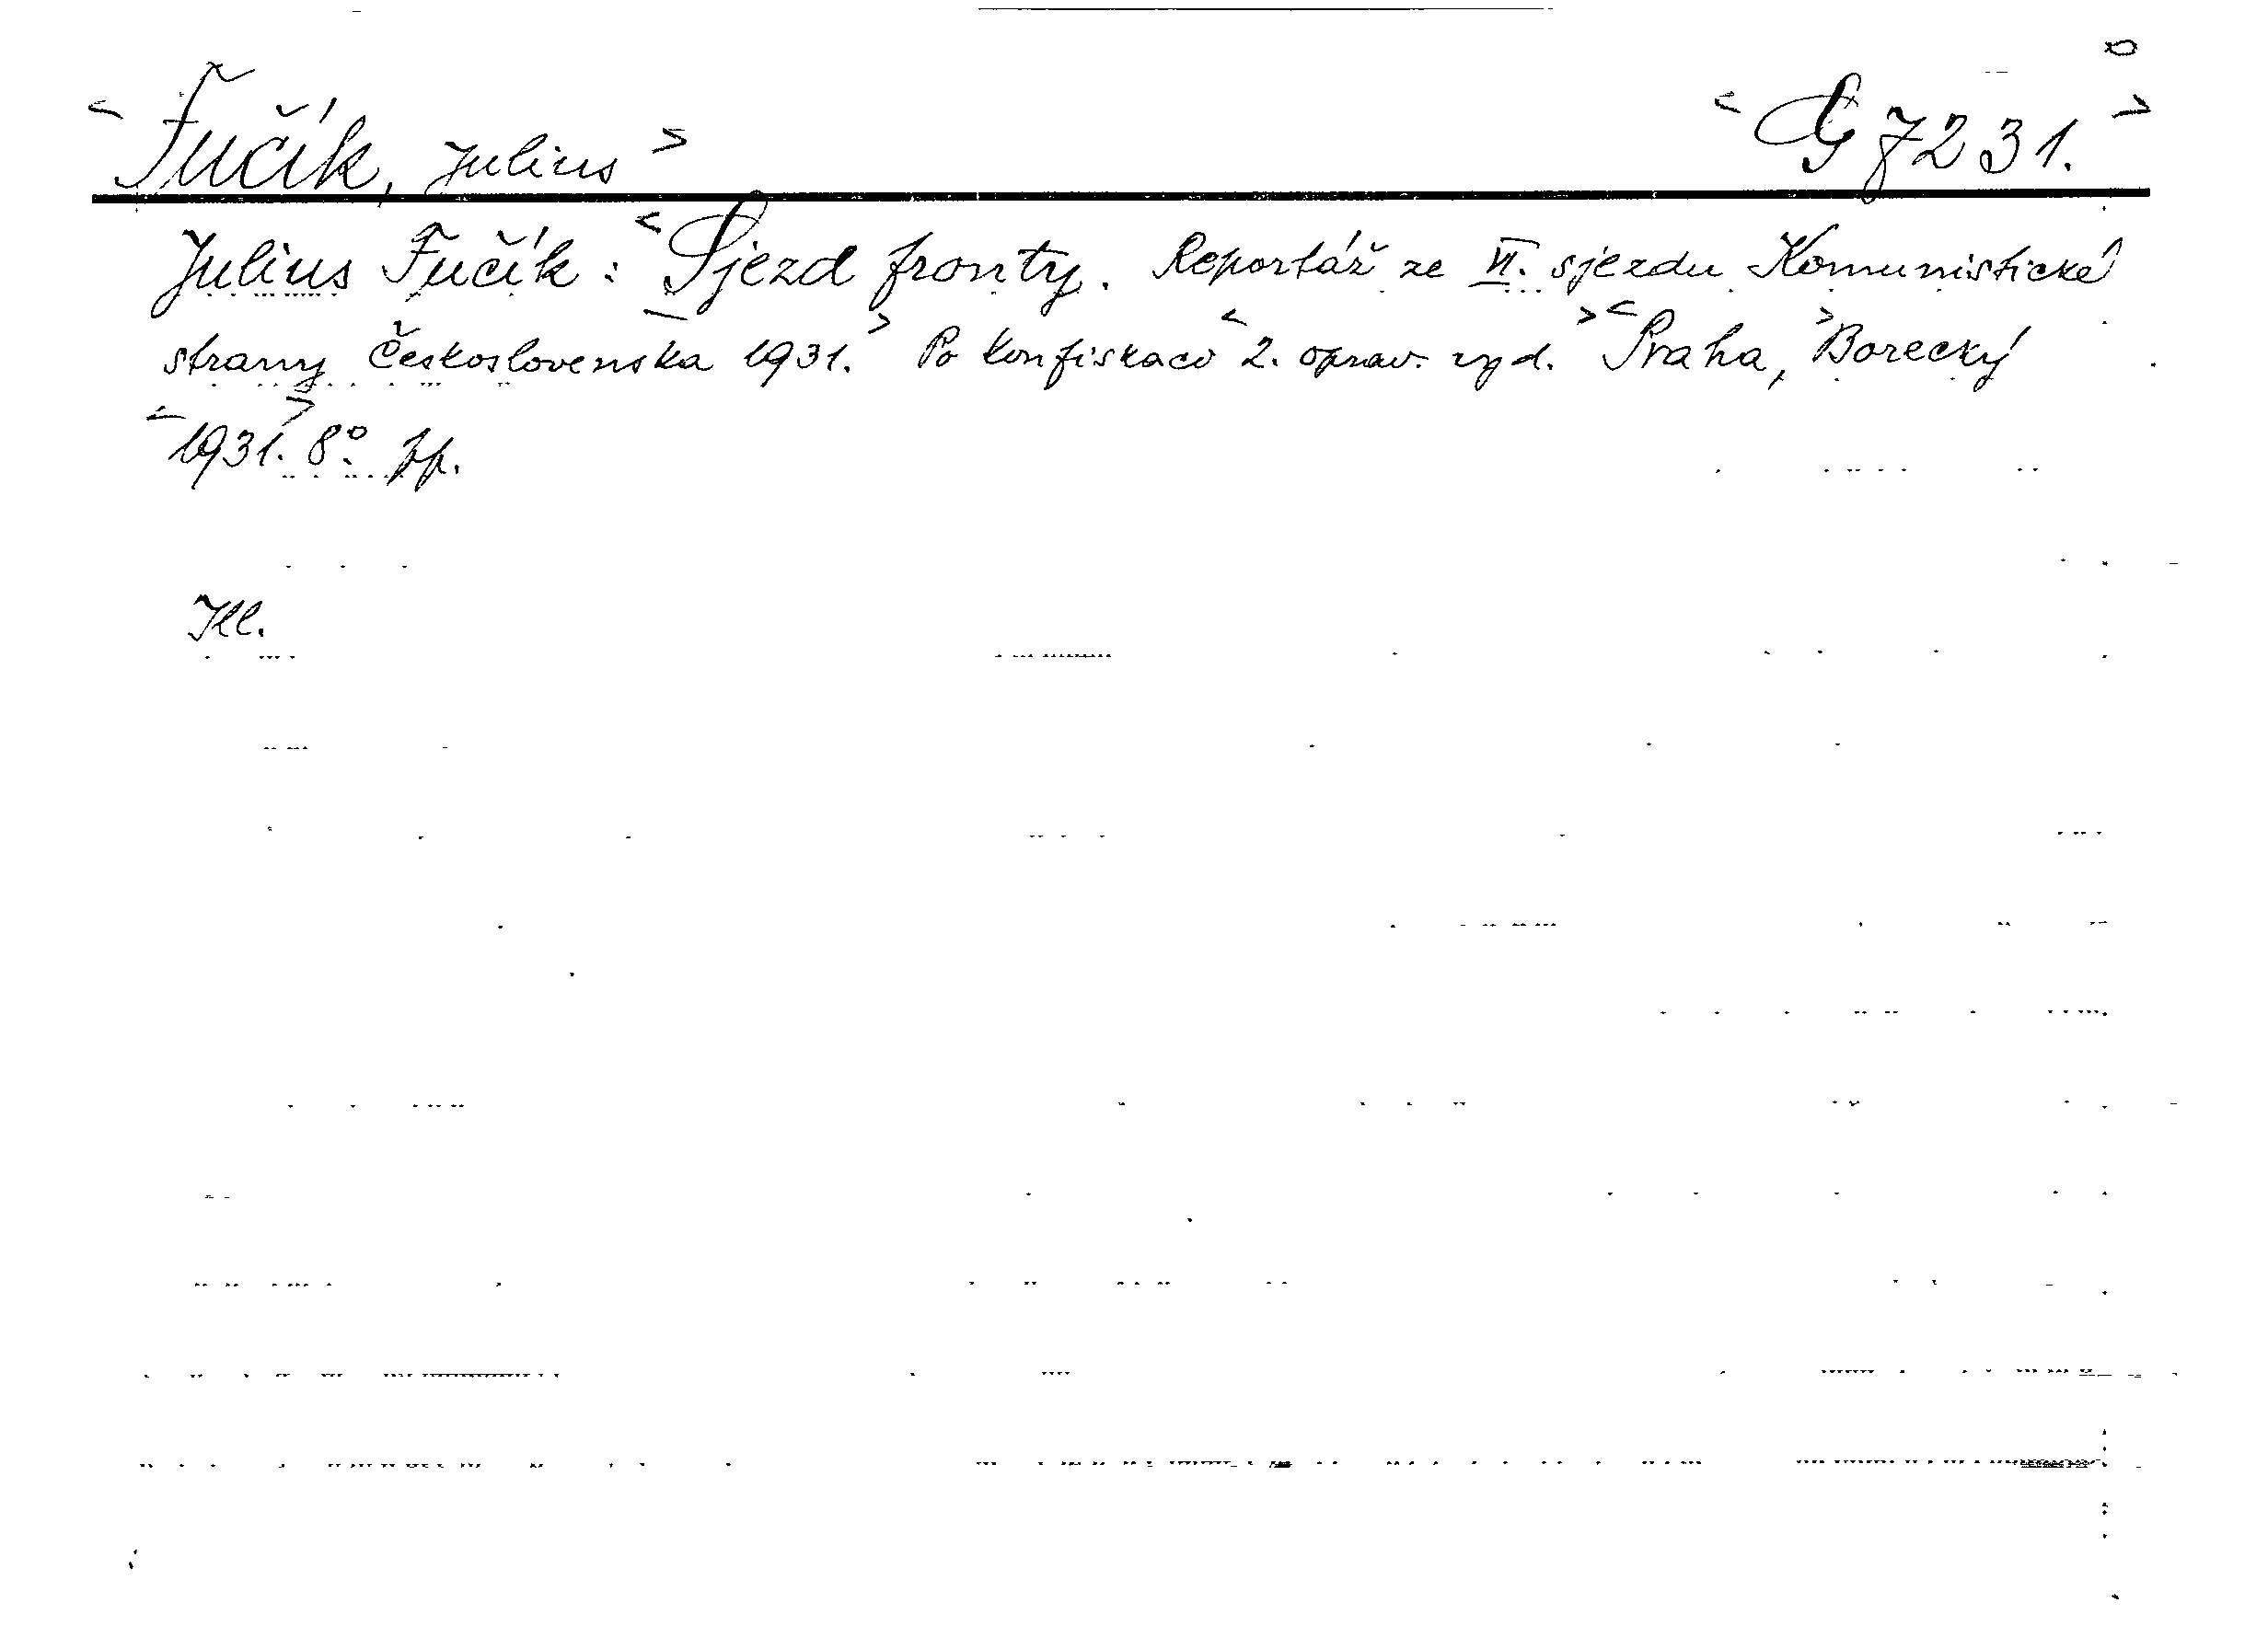 <Fučík, Julius> <G 7231.>
Julius Fučík: <Sjezd fronty. Reportáž ze VI. sjezdu Komunistické
strany Československa 1931.> Po konfiskaci <2. oprav. vyd.> <Praha,> Borecký
<1931.> 8°.
Ill.